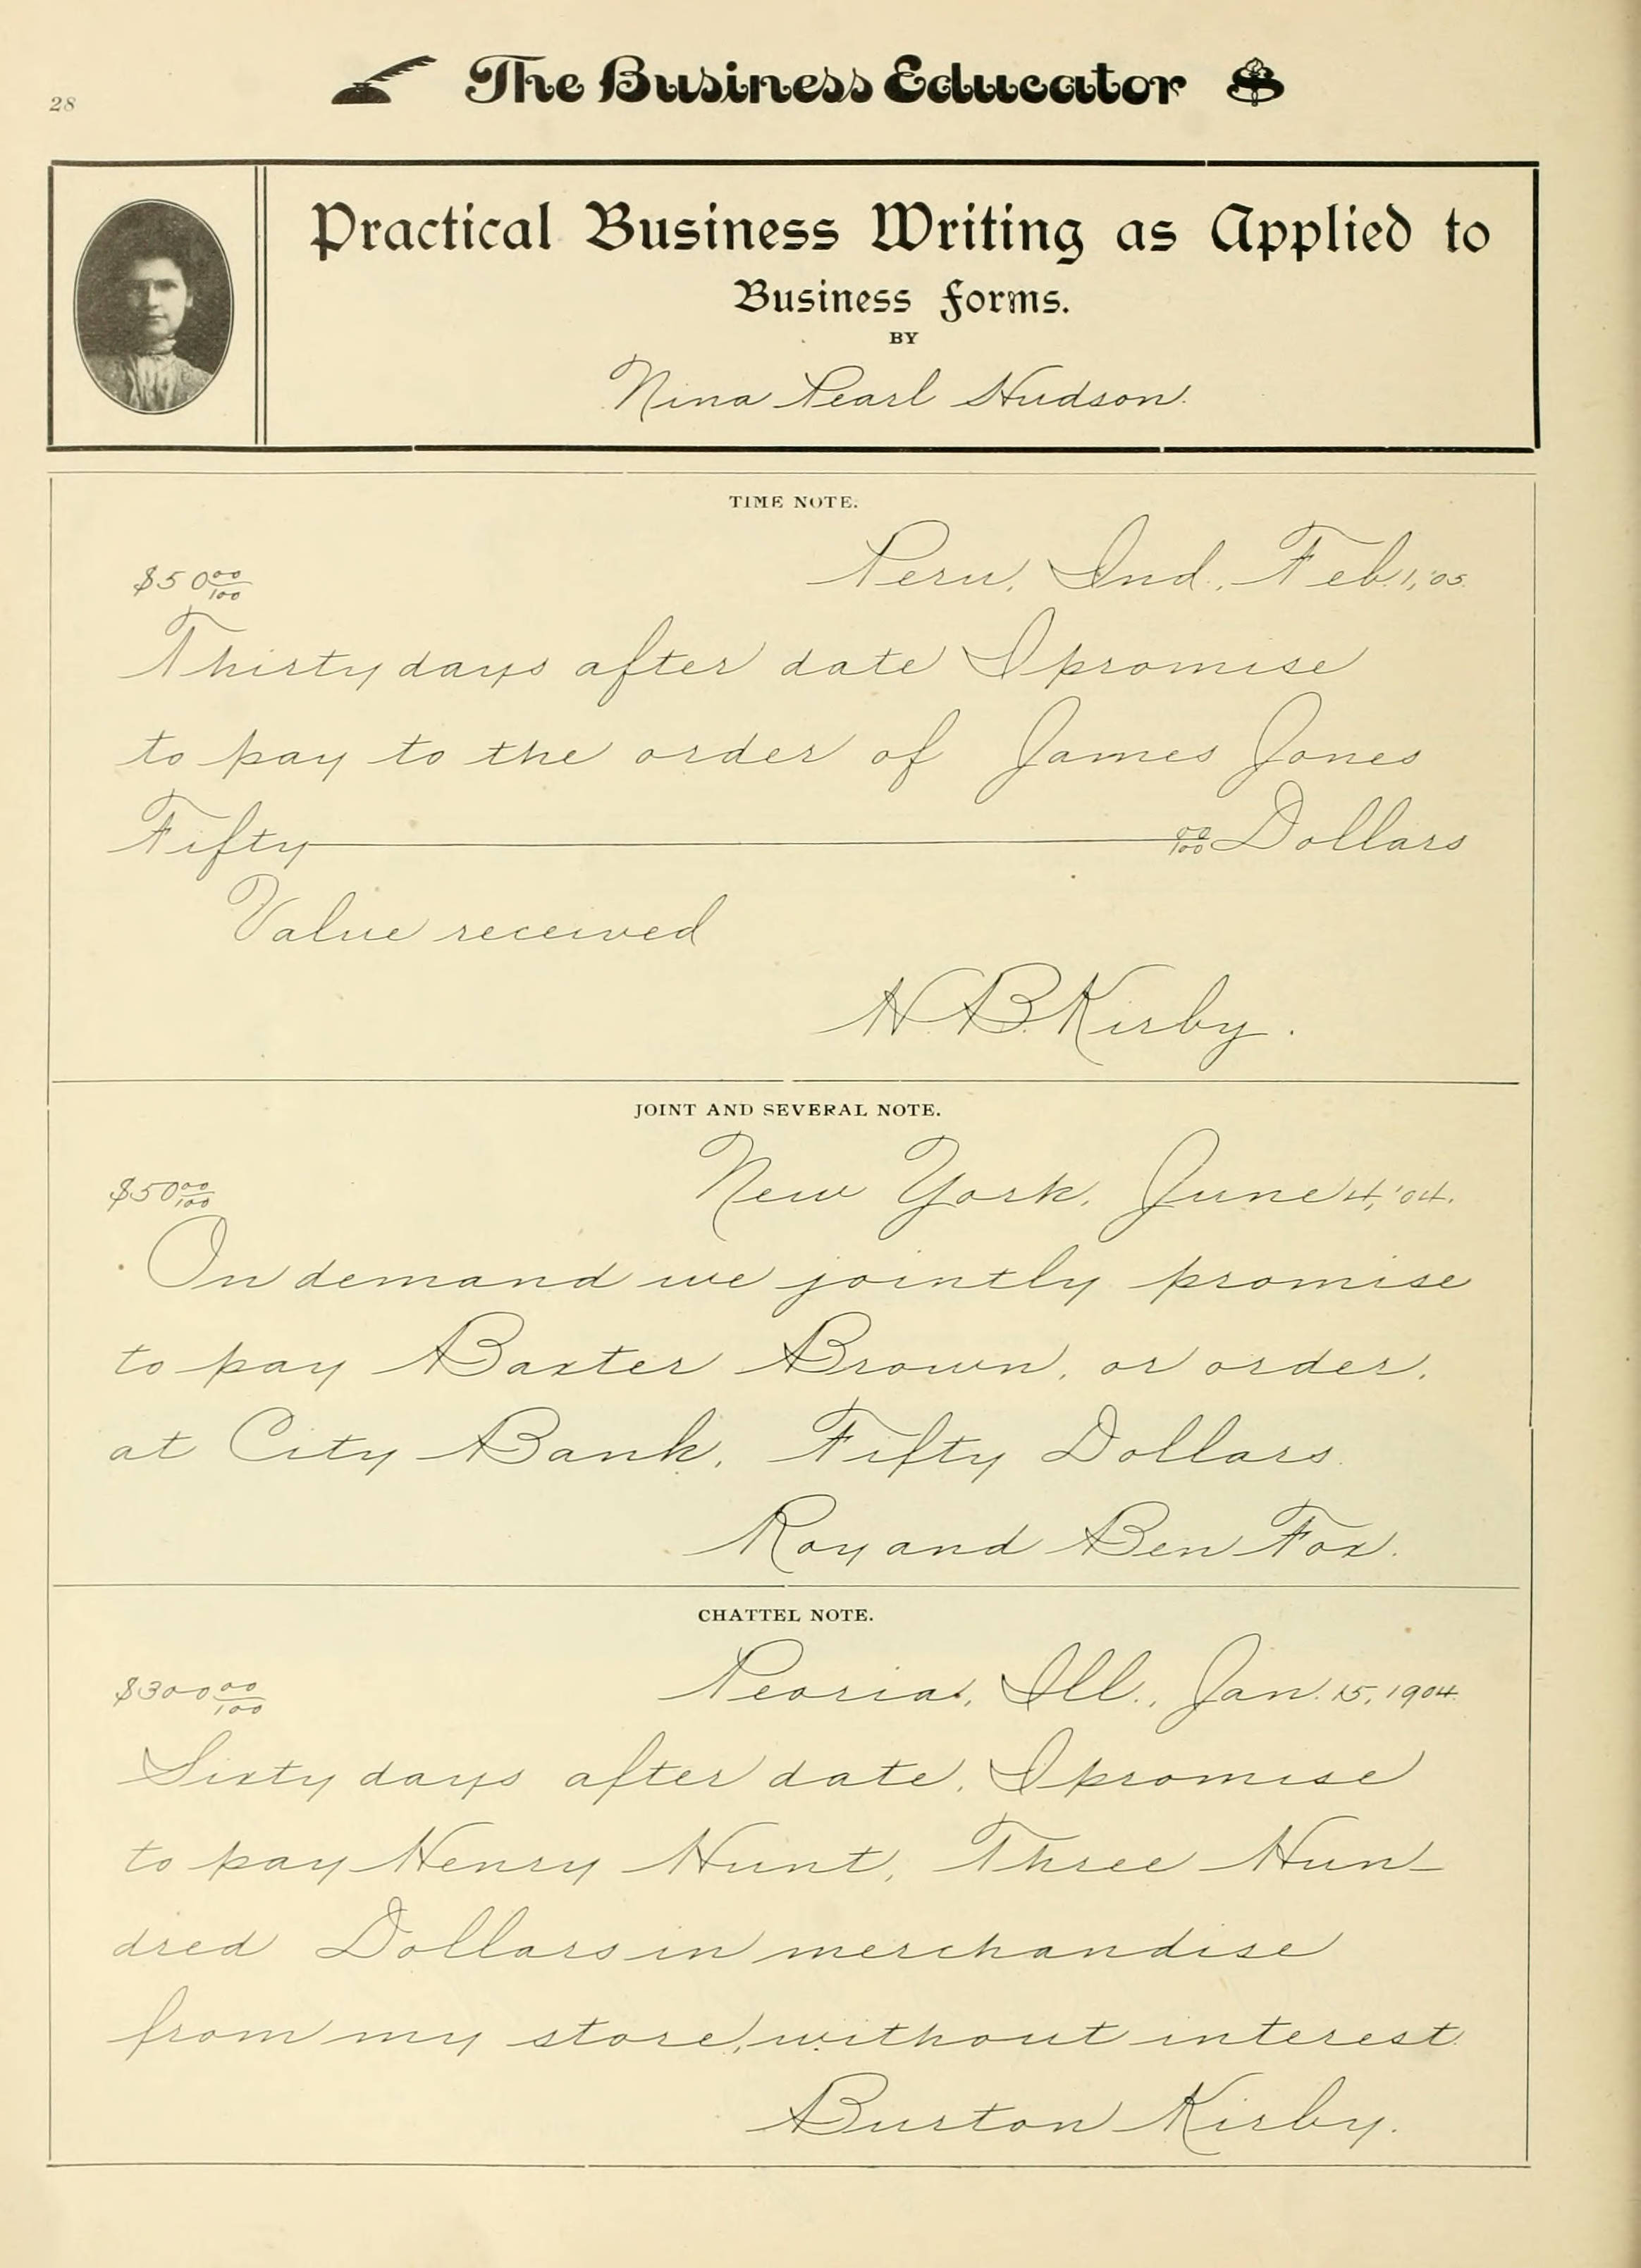 28
The Business Educator
Practical Business Writing as Applied to
Business Forms.
BY
Nina Pearl Hudson.
TIME NOTE.
$50 00/100 Peru, Ind., Feb. 1, '05.
Thirty days after date I promise
to pay to the order of James Jones
Fifty 00/100 Dollars
Value received
H. B. Kirby.
JOINT AND SEVERAL NOTE.
$50 00/100 New York, June 4, '04.
On demand we jointly promise
to pay Baxter Brown, or order,
at City Bank, Fifty Dollars.
Roy and Ben Fox.
CHATTEL NOTE.
$300 00/100 Peoria, Ill., Jan. 15, 1904.
Sixty days after date, I promise
to pay Henry Hunt, Three Hun-
dred Dollars in merchandise
from my store, without interest.
Burton Kirby.